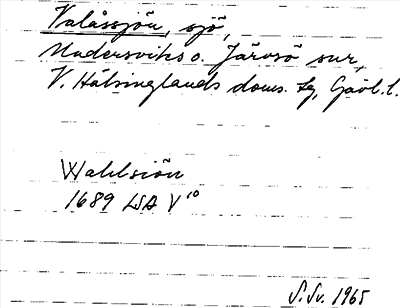 Valåssjön, sjö,
Undersviks o. Järvsö snr,
V. Hälsinglands doms. tg, Gävl. l.
Wahlsiön
1689 LSA V¹⁰
S.Sv. 1965